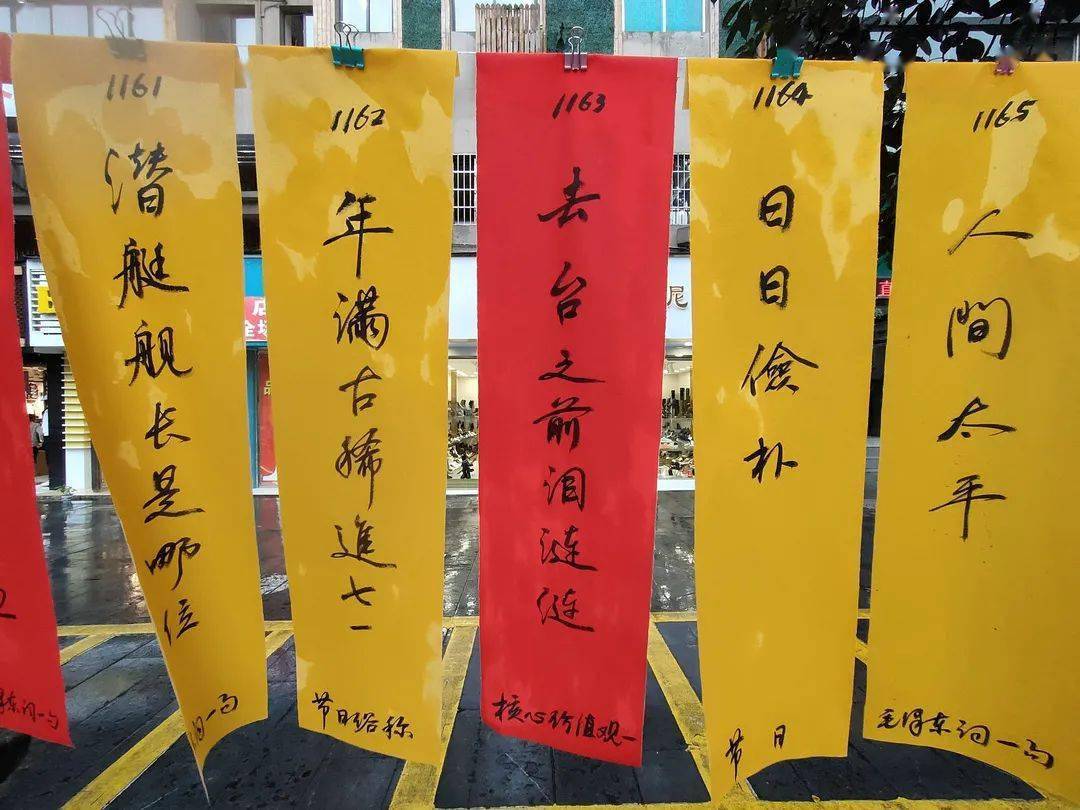 1161
潜艇舰长是哪位
词一句
1162
年满古稀進七一
节日俗称
1163
去台之前泪涟涟
核心价值观一
1164
日日儉朴
节日
1165
人間太平
毛泽东词一句
泽东词一句
店
全场
尼